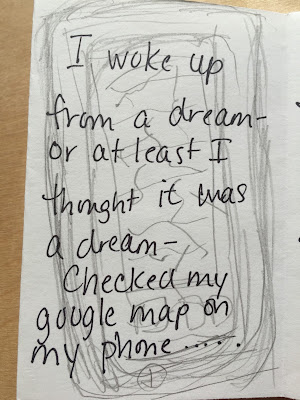 I woke up
from a dream-
or at least I
thought it was
a dream-
Checked my
google map on
my phone.....
1